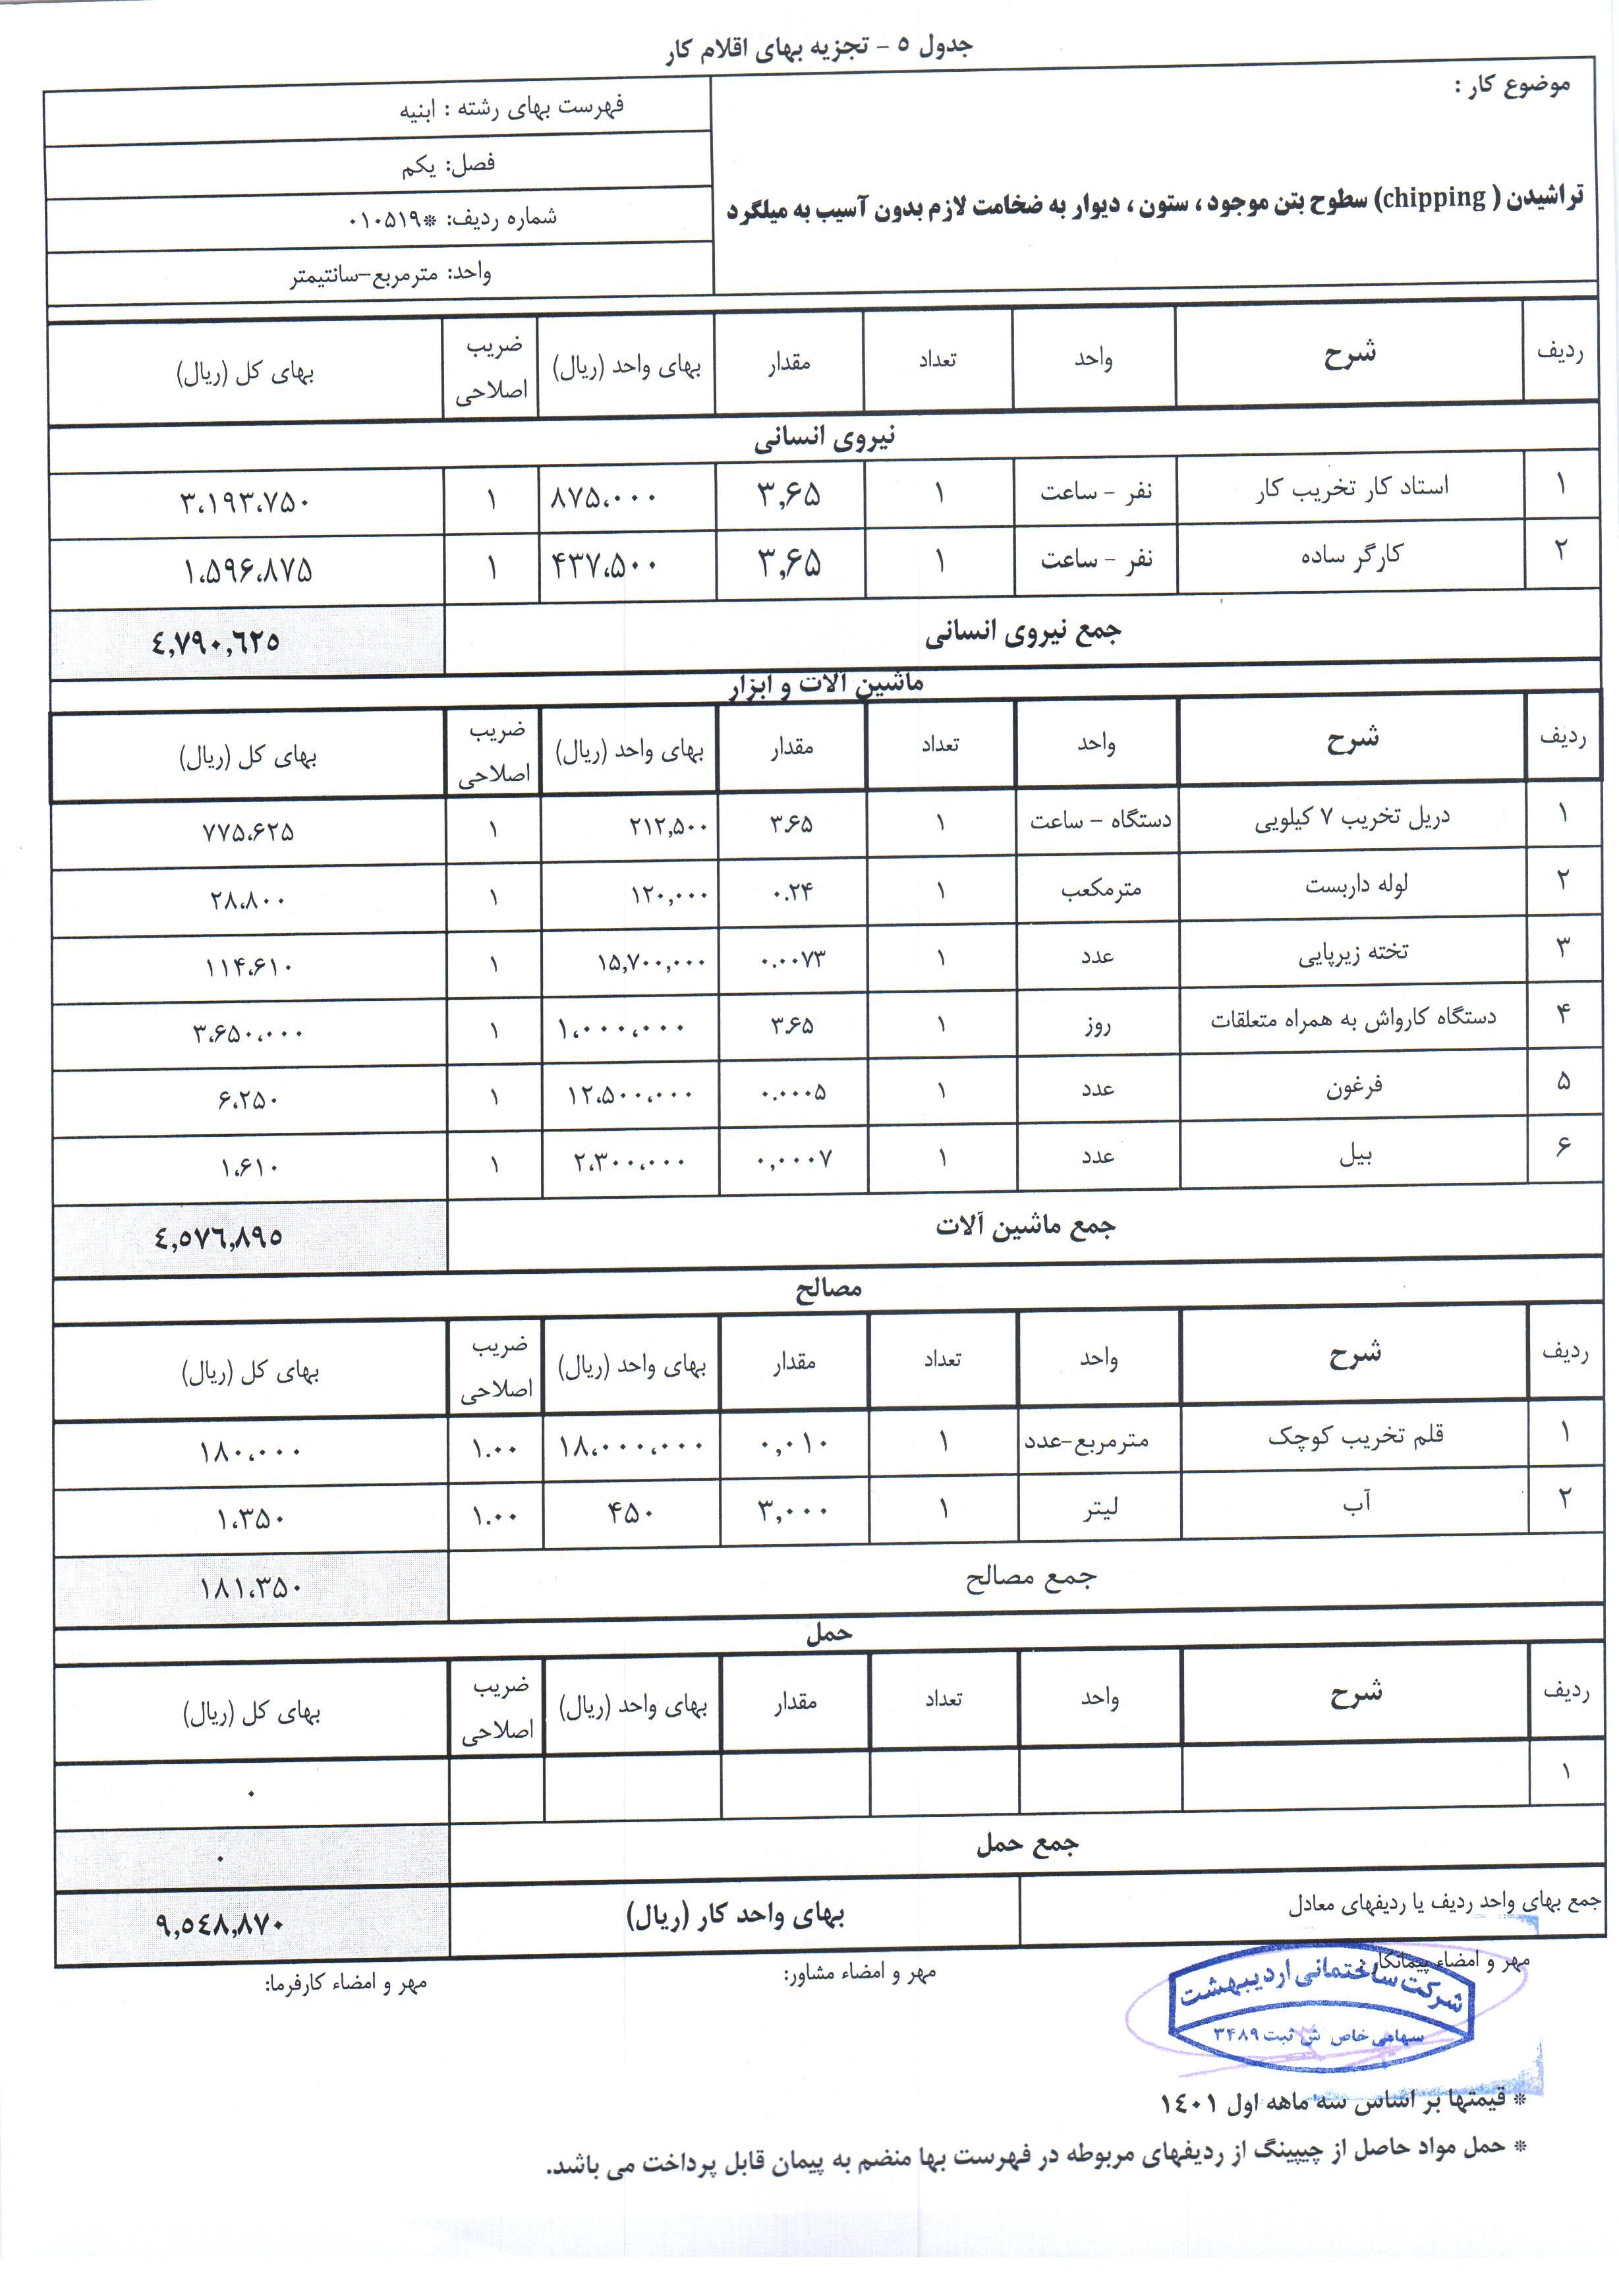 جدول ۵ - تجزیه بهای اقلام کار
موضوع کار :
تراشیدن ( chipping) سطوح بتن موجود ، ستون ، دیوار به ضخامت لازم بدون آسیب به میلگرد
فهرست بهای رشته : ابنیه
فصل: یکم
شماره ردیف: *۰۱۰۵۱۹
واحد: مترمربع-سانتیمتر
ردیف شرح واحد تعداد مقدار بهای واحد (ریال) ضریب اصلاحی بهای کل (ریال)
نیروی انسانی
۱ استاد کار تخریب کار نفر - ساعت ۱ ۳,۶۵ ۸۷۵،۰۰۰ ۱ ۳،۱۹۳،۷۵۰
۲ کارگر ساده نفر - ساعت ۱ ۳,۶۵ ۴۳۷،۵۰۰ ۱ ۱،۵۹۶،۸۷۵
جمع نیروی انسانی ٤,٧٩٠,٦٢٥
ماشین آلات و ابزار
ردیف شرح واحد تعداد مقدار بهای واحد (ریال) ضریب اصلاحی بهای کل (ریال)
۱ دریل تخریب ۷ کیلویی دستگاه - ساعت ۱ ۳.۶۵ ۲۱۲,۵۰۰ ۱ ۷۷۵،۶۲۵
۲ لوله داربست مترمکعب ۱ ۰.۲۴ ۱۲۰,۰۰۰ ۱ ۲۸،۸۰۰
۳ تخته زیرپایی عدد ۱ ۰.۰۰۷۳ ۱۵,۷۰۰,۰۰۰ ۱ ۱۱۴،۶۱۰
۴ دستگاه کارواش به همراه متعلقات روز ۱ ۳.۶۵ ۱،۰۰۰،۰۰۰ ۱ ۳،۶۵۰،۰۰۰
۵ فرغون عدد ۱ ۰.۰۰۰۵ ۱۲،۵۰۰،۰۰۰ ۱ ۶،۲۵۰
۶ بیل عدد ۱ ۰,۰۰۰۷ ۲،۳۰۰،۰۰۰ ۱ ۱،۶۱۰
جمع ماشین آلات ٤,٥٧٦,٨٩٥
مصالح
ردیف شرح واحد تعداد مقدار بهای واحد (ریال) ضریب اصلاحی بهای کل (ریال)
۱ قلم تخریب کوچک مترمربع-عدد ۱ ۰,۰۱۰ ۱۸،۰۰۰،۰۰۰ ۱.۰۰ ۱۸۰،۰۰۰
۲ آب لیتر ۱ ۳,۰۰۰ ۴۵۰ ۱.۰۰ ۱،۳۵۰
جمع مصالح ۱۸۱،۳۵۰
حمل
ردیف شرح واحد تعداد مقدار بهای واحد (ریال) ضریب اصلاحی بهای کل (ریال)
۱ ۰
جمع حمل ۰
جمع بهای واحد ردیف یا ردیفهای معادل بهای واحد کار (ریال) ٩,٥٤٨,٨٧٠
مهر و امضاء پیمانکار : مهر و امضاء مشاور: مهر و امضاء کارفرما:
شرکت ساختمانی اردیبهشت
سهامی خاص ش ثبت ۳۴۸۹
* قیمتها بر اساس سه ماهه اول ١٤٠١
* حمل مواد حاصل از چیپینگ از ردیفهای مربوطه در فهرست بها منضم به پیمان قابل پرداخت می باشد.